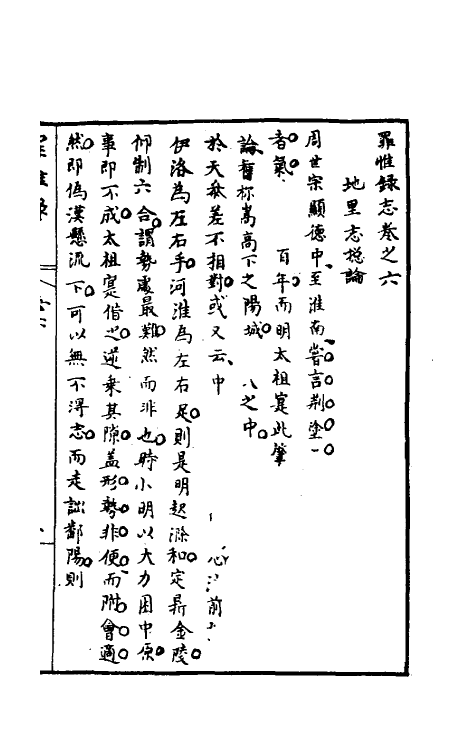 罪惟錄志卷之六
地里志總論
周世宗顯德中至淮南嘗言荆塗一
者氣 百年而明太祖寔此肇
論者称嵩高下之陽城 之中
於天發差不相對或又云中 心 前
伊洛為左右手河淮為左右足則是明起滁和定鼎金陵
仰制六合謂勢處最難然而非也時小明以大力困中原
事即不成太祖寔借之逆乘其隙盖形勢非便而附會適
然即偽漢懸流下可以無不淂志而走訟鄱陽則